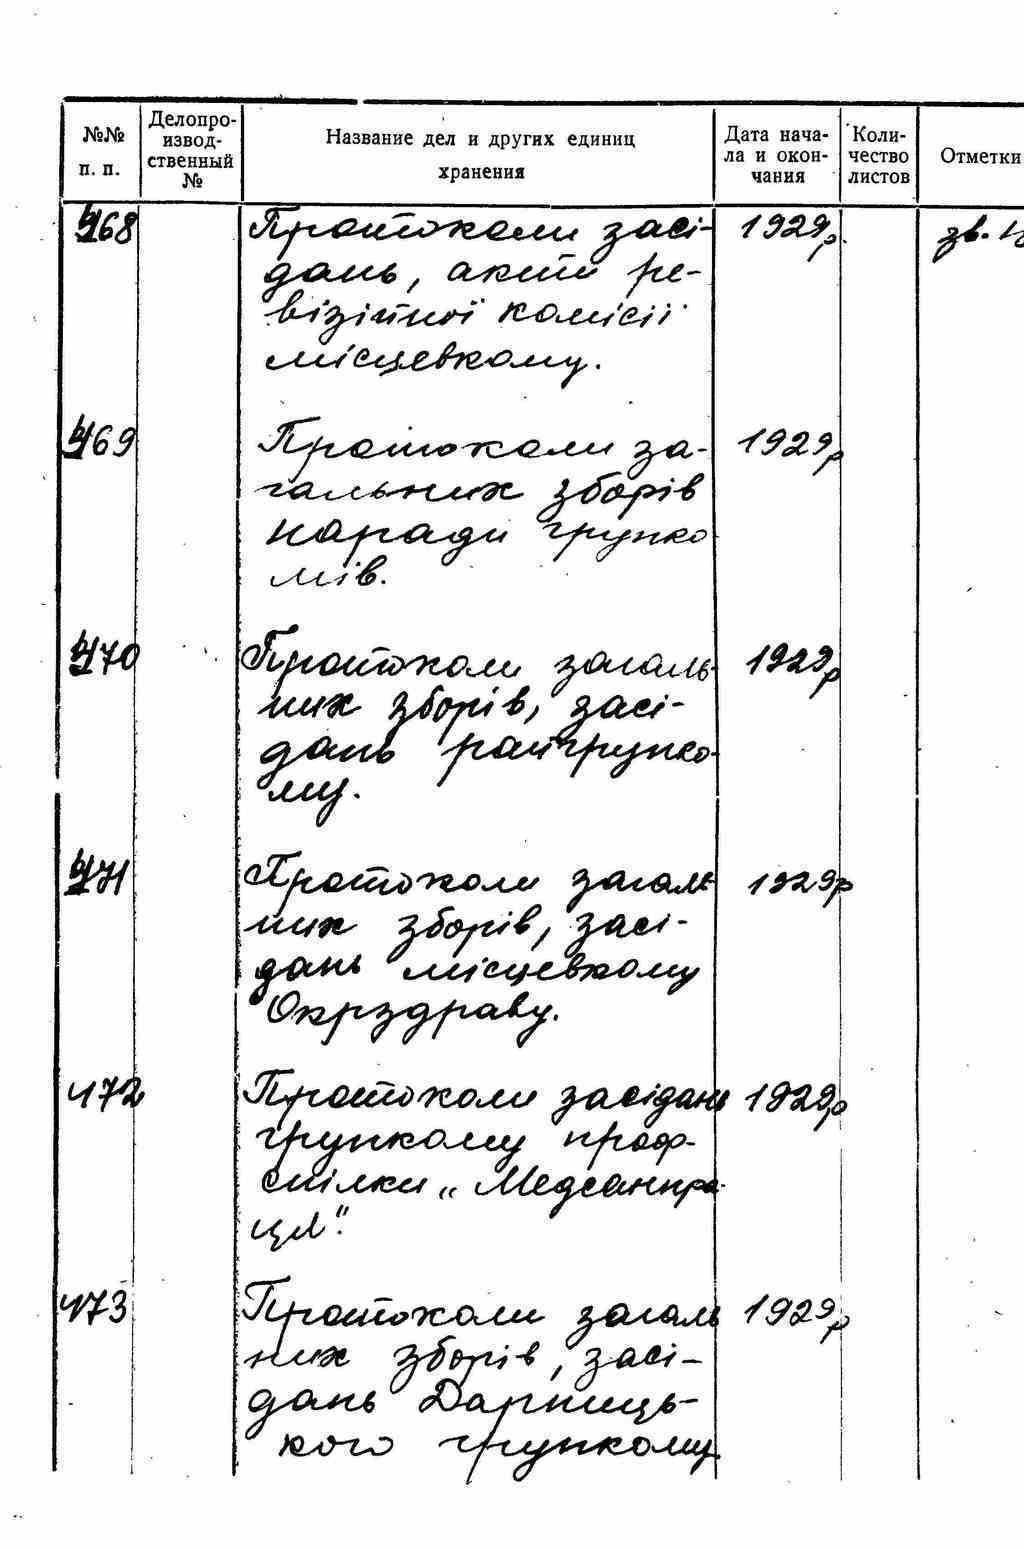 №№ п. п.
Делопро-
извод-
ственный
№
Название дел и других единиц
хранения
Дата нача-
ла и окон-
чания
Коли-
чество
листов
Отметки
468 Протоколи засі- 1929р. зв.
дань, акти ре-
візійної комісії
місцевкому.
469 Протоколи за- 1929р
гальних зборів
наради групко
мів.
470 Протоколи загаль- 1929р
них зборів, засі-
дань райгрупко-
му.
471 Протоколи загаль 1929р
них зборів, засі-
дань місцевкому
Окрздраву.
472 Протоколи засідань 1929р
групкому проф-
спілки „Медсанпра-
ця".
473 Протоколи загаль 1929р
них зборів, засі-
дань Дарниць-
кого групкому